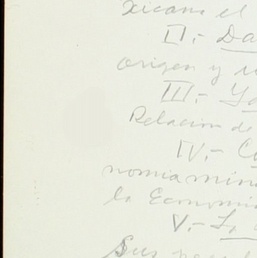 xicano el
II.- Da
origen y
III.-
Relacion de
IV.-
nomia min
la Economi
V.- La
Sus